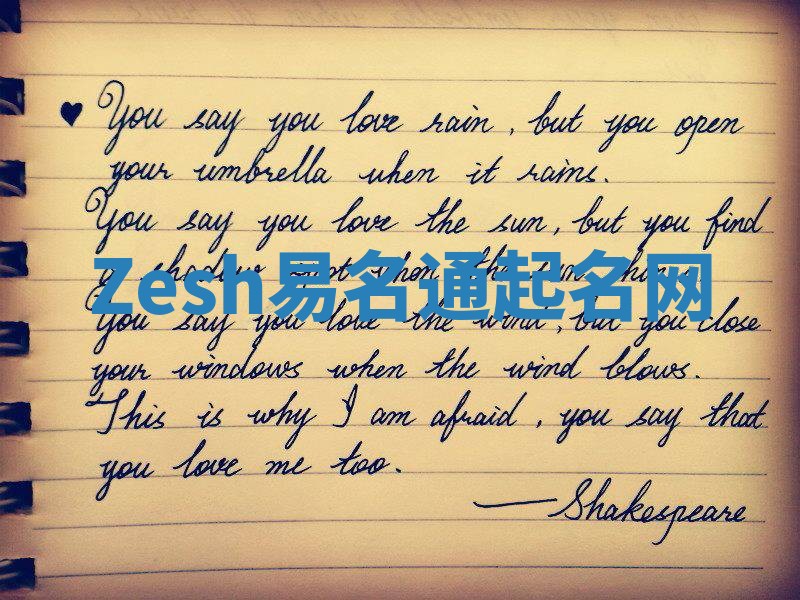 ♥ You say you love rain, but you open
your umbrella when it rains.
You say you love the sun, but you find
a shadow spot when the sun shines.
Zesh易名通起名网
You say you love the wind, but you close
your windows when the wind blows.
This is why I am afraid, you say that
you love me too.
— Shakespeare